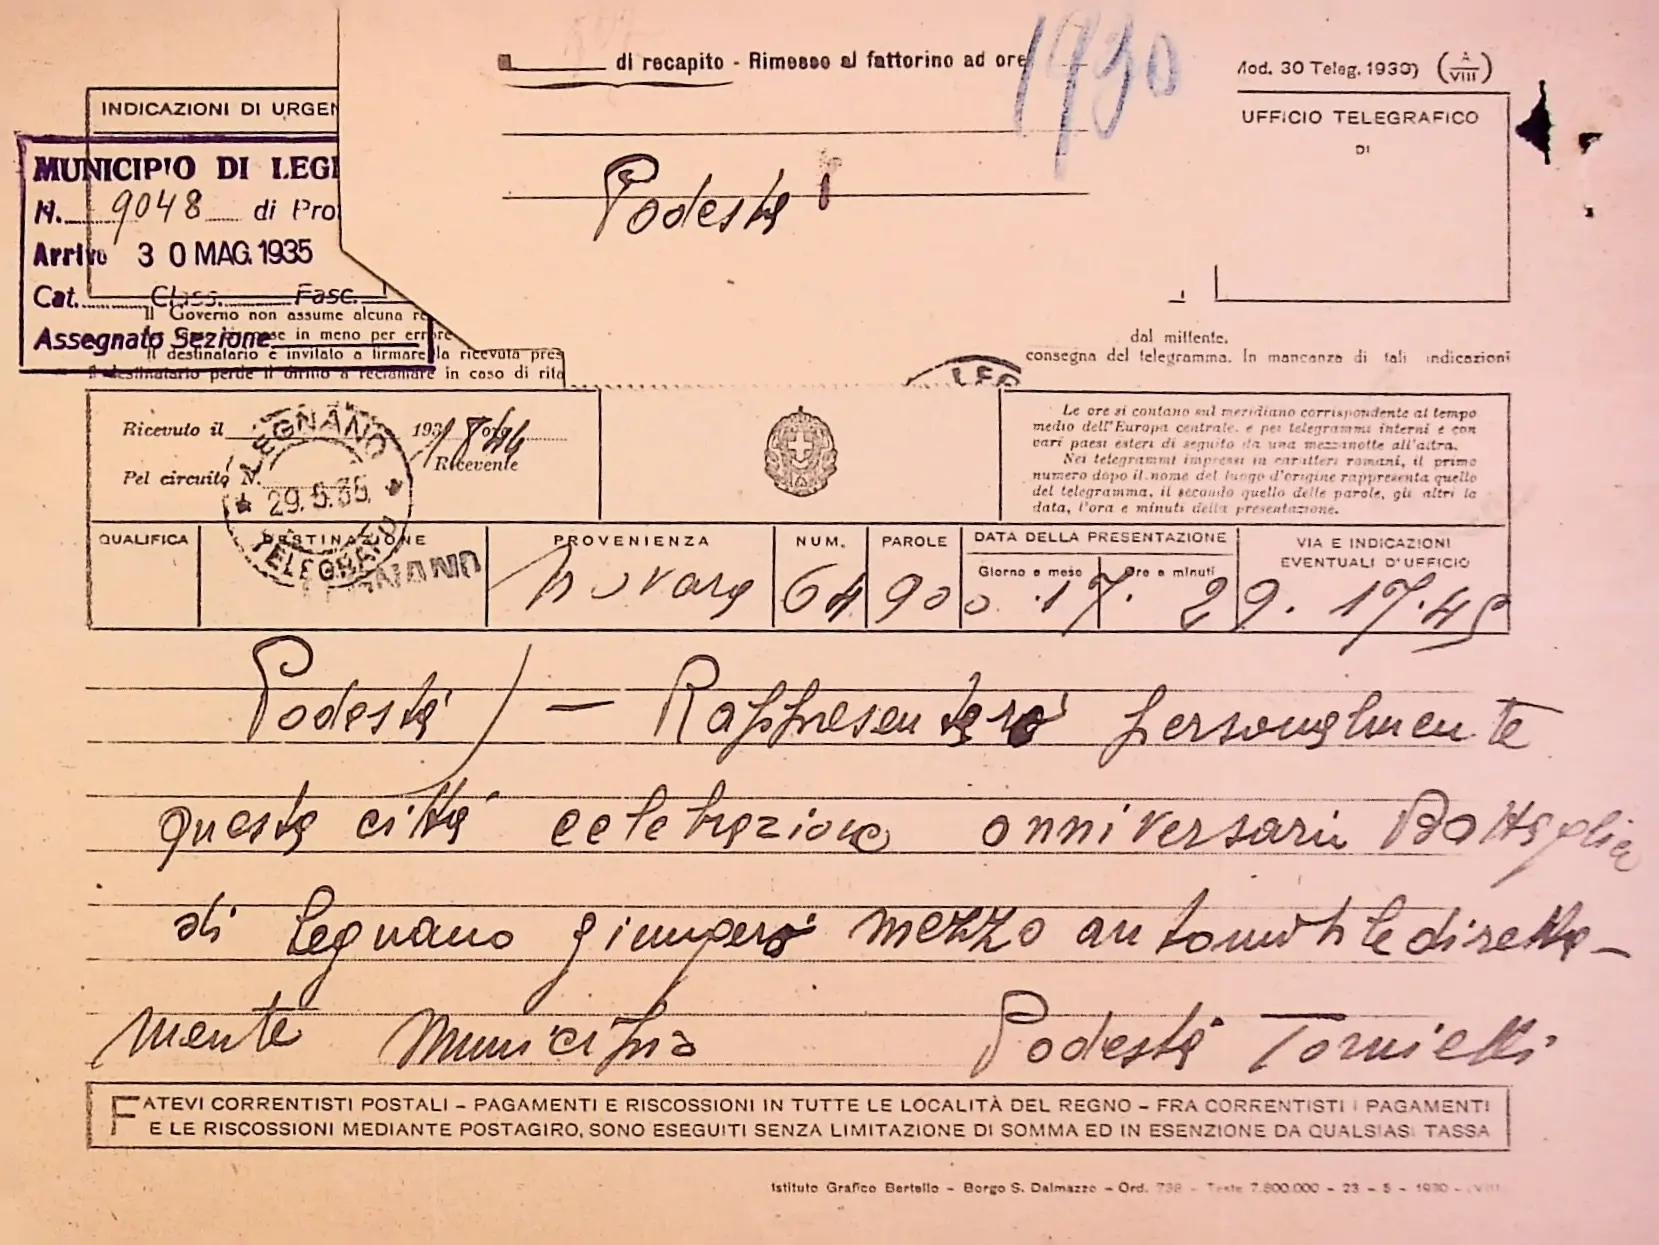 di recapito - Rimesso al fattorino ad ore 1930
Mod. 30 Teleg. 1930 (A/VIII)
INDICAZIONI DI URGEN
UFFICIO TELEGRAFICO
DI
MUNICIPIO DI LEG
N. 9048 di Pro
Arrivo 30 MAG. 1935
Cat. Class. Fasc.
Assegnato Sezione
Podestà
Il Governo non assume alcuna re
se in meno per errore
dal mittente.
Il destinatario è invitato a firmare la ricevuta pres
consegna del telegramma. In mancanza di tali indicazioni
Il destinatario perde il diritto a reclamare in caso di rita
LEG
Ricevuto il 193 ore 18 44
Pel circuito N. Ricevente
LEGNANO
29.5.35
TELEGRAFO
Le ore si contano sul meridiano corrispondente al tempo
medio dell'Europa centrale, e pei telegrammi interni e con
vari paesi esteri di seguito da una mezzanotte all'altra.
Nei telegrammi impressi in caratteri romani, il primo
numero dopo il nome del luogo d'origine rappresenta quello
del telegramma, il secondo quello delle parole, gli altri la
data, l'ora e minuti della presentazione.
QUALIFICA DESTINAZIONE PROVENIENZA NUM. PAROLE DATA DELLA PRESENTAZIONE VIA E INDICAZIONI
Giorno e mese Ore e minuti EVENTUALI D'UFFICIO
LEGNANO Novara 64 90 17. 29. 17.45
Podestà - Rappresenterò personalmente
questa città celebrazione anniversario Battaglia
di Legnano giungerò mezzo automobile diretta-
mente Municipio Podestà Tornielli
FATEVI CORRENTISTI POSTALI - PAGAMENTI E RISCOSSIONI IN TUTTE LE LOCALITÀ DEL REGNO - FRA CORRENTISTI I PAGAMENTI
E LE RISCOSSIONI MEDIANTE POSTAGIRO, SONO ESEGUITI SENZA LIMITAZIONE DI SOMMA ED IN ESENZIONE DA QUALSIASI TASSA
Istituto Grafico Bertello - Borgo S. Dalmazzo - Ord. 738 - Teste 7.800.000 - 23 - 5 - 1930 - (VIII